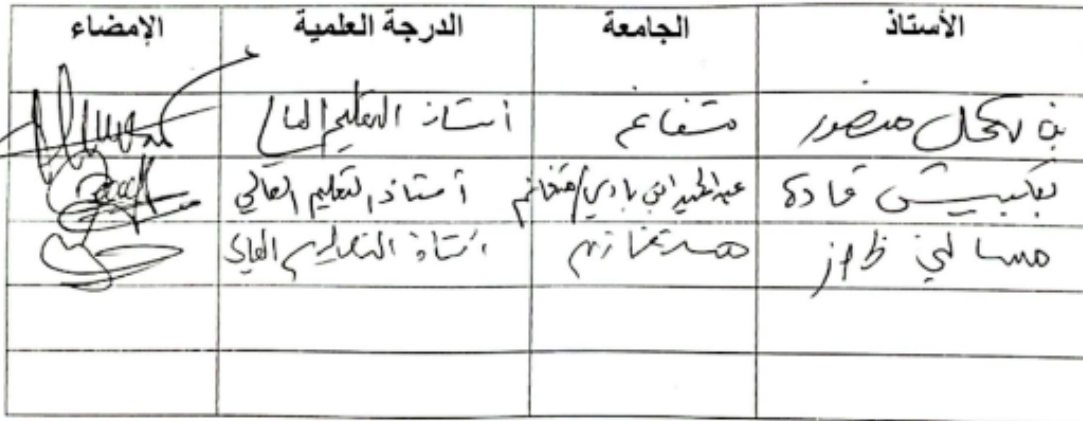 الأستاذ الجامعة الدرجة العلمية الإمضاء
بن لكحل منصور مستغانم أستاذ التعليم العا
بقبيش قادة عبد الحميد ابن باديس/مستغانم أستاذ التعليم العالي
مسالتي مستغانم أستاذ التعليم العالي